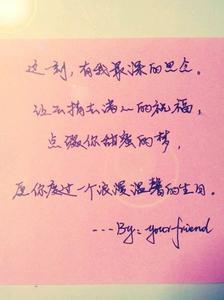 这一刻,有我最深的思念。
让云捎去满心的祝福,
点缀你甜蜜的梦,
愿你度过一个浪漫温馨的生日。
---By:your friend